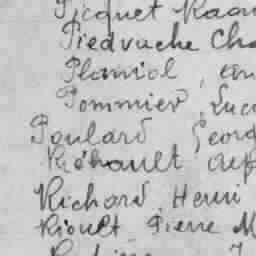 Picquet Raou
Piedvache Cha
Planiol, An
Pommier, Luci
Poulard Georg
Réhault Alf
Richard Henri
Rioult Pierre M